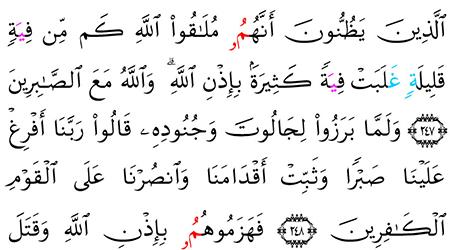 الَّذِينَ يَظُنُّونَ أَنَّهُمُۥ مُلَٰقُواْ اللَّهِ كَم مِّن فِيَةٖ
قَلِيلَةٍ غَلَبَتْ فِيَةٗ كَثِيرَةَۢ بِإِذْنِ اللَّهِۖ وَاللَّهُ مَعَ الصَّٰبِرِينَ
٢٤٧ وَلَمَّا بَرَزُواْ لِجَالُوتَ وَجُنُودِهِۦ قَالُواْ رَبَّنَا أَفْرِغْ
عَلَيْنَا صَبْرٗا وَثَبِّتْ أَقْدَامَنَا وَانصُرْنَا عَلَى الْقَوْمِ
الْكَٰفِرِينَ ٢٤٨ فَهَزَمُوهُمُۥ بِإِذْنِ اللَّهِ وَقَتَلَ